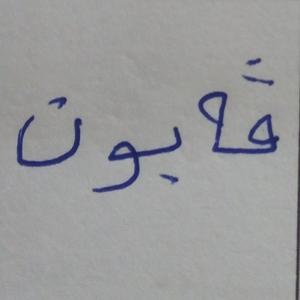 ڤابون